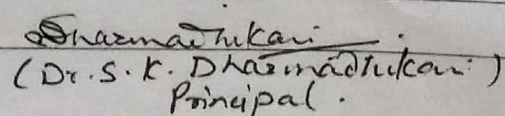 Dharmadhikari
(Dr. S. K. Dharmadhikari)
Principal.